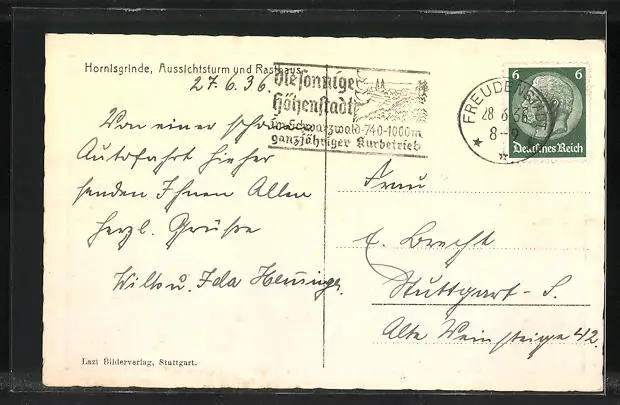 Hornisgrinde, Aussichtsturm und Rasthaus
27.6.36.
Die sonnige
Höhenstadt
im Schwarzwald 740-1000m
ganzjähriger Kurbetrieb
FREUDENSTADT
28.6.36
8-9
6 6
Deutsches Reich
Von einer schönen
Autofahrt hieher
senden Ihnen Allen
herzl. Grüsse
Willi u. Ida
Frau
E. Brecht
Stuttgart-S.
Alte Weinsteige 42.
Lazi Bilderverlag, Stuttgart.